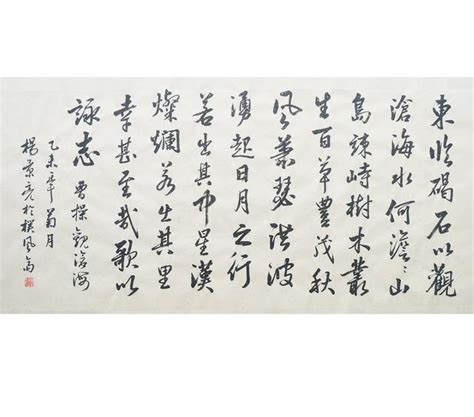 東臨碣石以觀
滄海水何澹〻山
島竦峙樹木叢
生百草豐茂秋
風蕭瑟洪波
湧起日月之行
若出其中星漢
燦爛若出其里
幸甚至哉歌以
詠志 曹操觀滄海
乙未年菊月
楊景亮於樸風斋